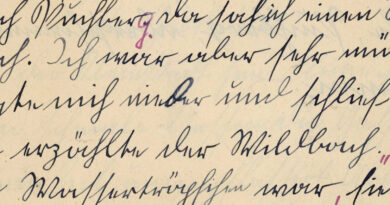 ch Puchberg. da sah ich einen
ch. Ich war aber sehr mü
gte mich nieder und schlief
erzählte der Wildbach.
Wassertröpfchen war, sie